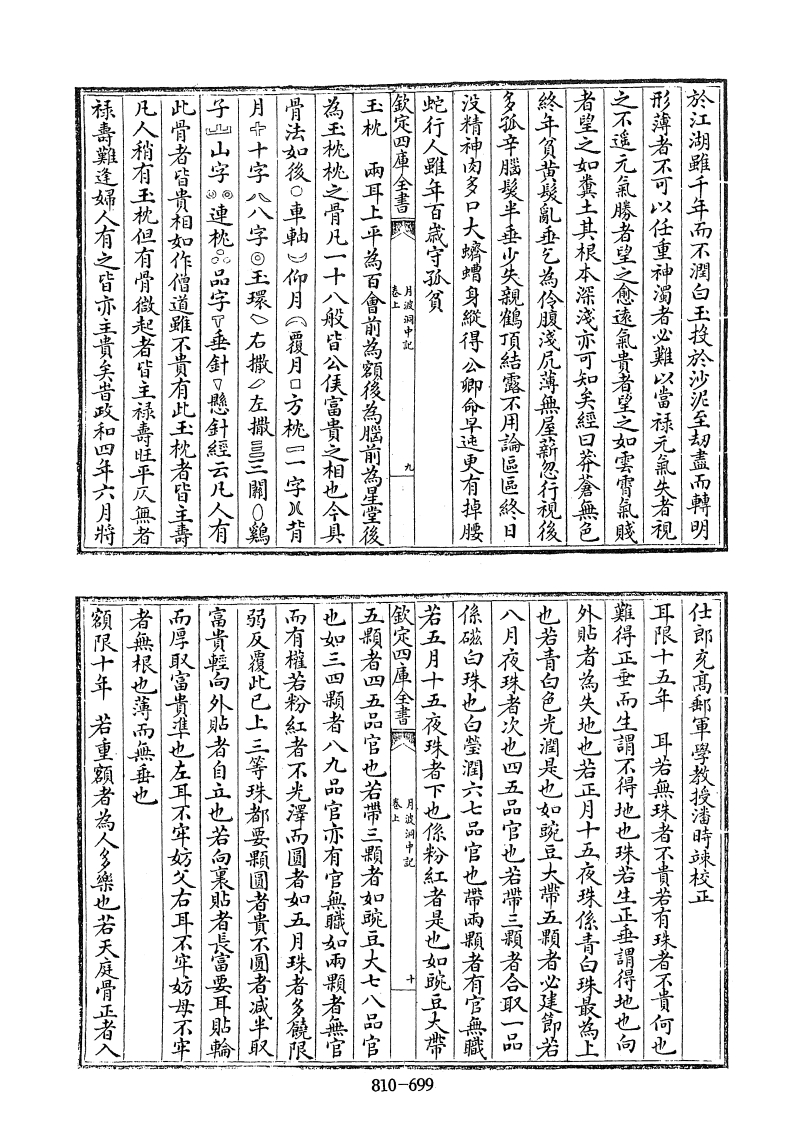 於江湖雖千年而不潤白玉投於沙泥至刼盡而轉明
形薄者不可以任重神濁者必難以當禄元氣失者視
之不遥元氣勝者望之愈遠氣貴者望之如雲霄氣賤
者望之如糞土其根本深淺亦可知矣經曰莽蒼無色
終年貧黄髮亂垂乞為伶腹淺尻薄無屋薪忽行視後
多孤辛腦髮半垂少失親鶴頂結露不用論區區終日
没精神肉多口大蠐螬身縱得公卿命早迍更有掉腰
蛇行人雖年百歳守孤貧
欽定四庫全書
月波洞中記
卷上
九
玉枕 兩耳上平為百會前為額後為腦前為星堂後
為玉枕枕之骨凡一十八般皆公侯富貴之相也今具
骨法如後○車軸 仰月 覆月□方枕 一字 背
月 十字 八字◎玉環 右撒 左撒 三關 鷄
子 山字 連枕 品字 垂針 懸針經云凡人有
此骨者皆貴相如作僧道雖不貴有此玉枕者皆主壽
凡人稍有玉枕但有骨微起者皆主禄壽旺平仄無者
禄壽難逢婦人有之皆亦主貴矣昔政和四年六月將
仕郎充髙郵軍學教授潘時竦校正
耳限十五年 耳若無珠者不貴若有珠者不貴何也
難得正垂而生謂不得地也珠若生正垂謂得地也向
外貼者為失地也若正月十五夜珠係青白珠最為上
也若青白色光潤是也如豌豆大帶五顆者必建節若
八月夜珠者次也四五品官也若帶三顆者合取一品
係磁白珠也白瑩潤六七品官也帶兩顆者有官無職
若五月十五夜珠者下也係粉紅者是也如豌豆大帶
欽定四庫全書
月波洞中記
卷上
十
五顆者四五品官也若帶三顆者如豌豆大七八品官
也如三四顆者八九品官亦有官無職如兩顆者無官
而有權若粉紅者不光澤而圓者如五月珠者多饒限
弱反覆此已上三等珠都要顆圓者貴不圓者减半取
富貴輕向外貼者自立也若向裏貼者長富要耳貼輪
而厚取富貴準也左耳不牢妨父右耳不牢妨母不牢
者無根也薄而無垂也
額限十年 若重額者為人多樂也若天庭骨正者入
810-699